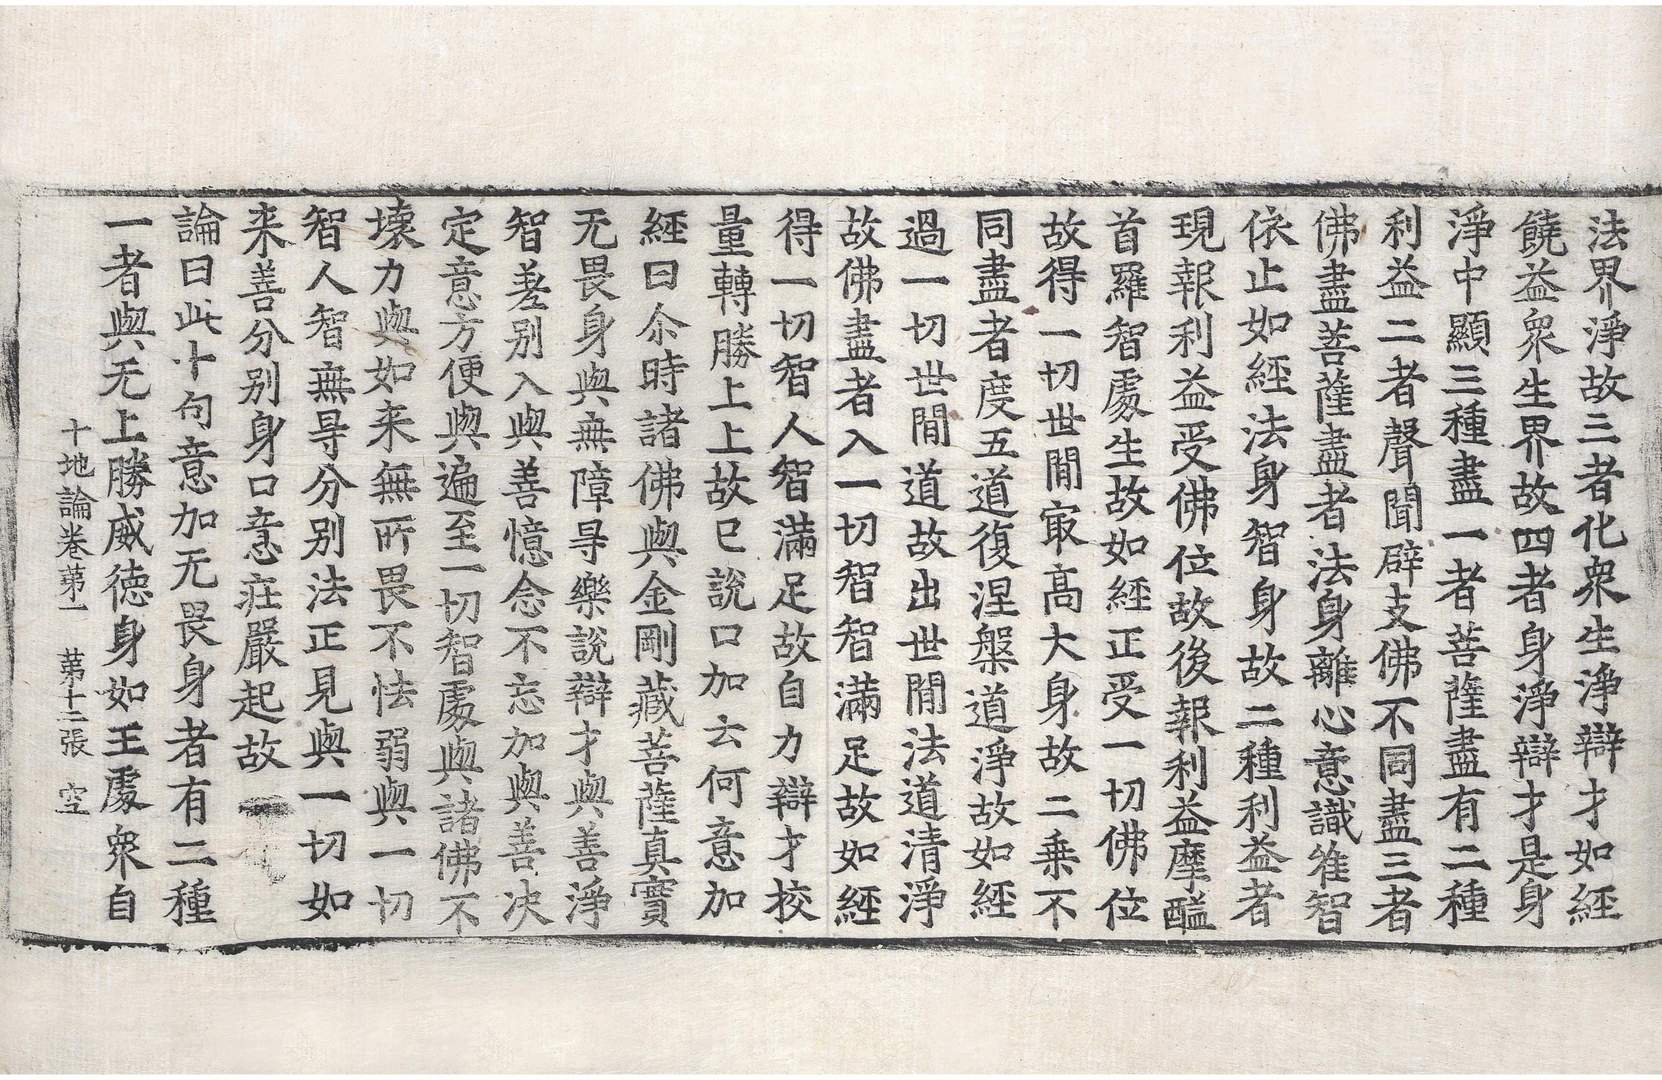 法界淨故三者化衆生淨辯才如經
饒益衆生界故四者身淨辯才是身
淨中顯三種盡一者菩薩盡有二種
利益二者聲聞辟支佛不同盡三者
佛盡菩薩盡者法身離心意識唯智
依止如經法身智身故二種利益者
現報利益受佛位故後報利益摩醯
首羅智處生故如經正受一切佛位
故得一切世間㝡高大身故二乗不
同盡者度五道復涅槃道淨故如經
過一切世間道故出世間法道清淨
故佛盡者入一切智智滿足故如經
得一切智人智滿足故自力辯才挍
量轉勝上上故已說口加云何意加
經曰尒時諸佛與金剛藏菩薩真實
无畏身與無障㝵樂說辯才與善淨
智差别入與善憶念不忘加與善决
定意方便與遍至一切智處與諸佛不
壞力與如来無所畏不怯弱與一切
智人智無㝵分别法正見與一切如
来善分别身口意莊嚴起故
論曰此十句意加无畏身者有二種
一者與无上勝威德身如王處衆自
十地論卷苐一 苐十二張 空